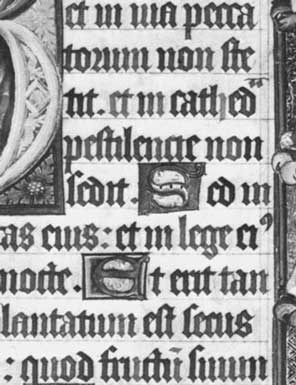 et in uia pecca
torum non ste
tit. et in cathed̄
pestilencie non
sedit. Sed in
as eius: et in lege ei⁹
nocte. Et erit tan
plantatum est secus
: quod fructū suum